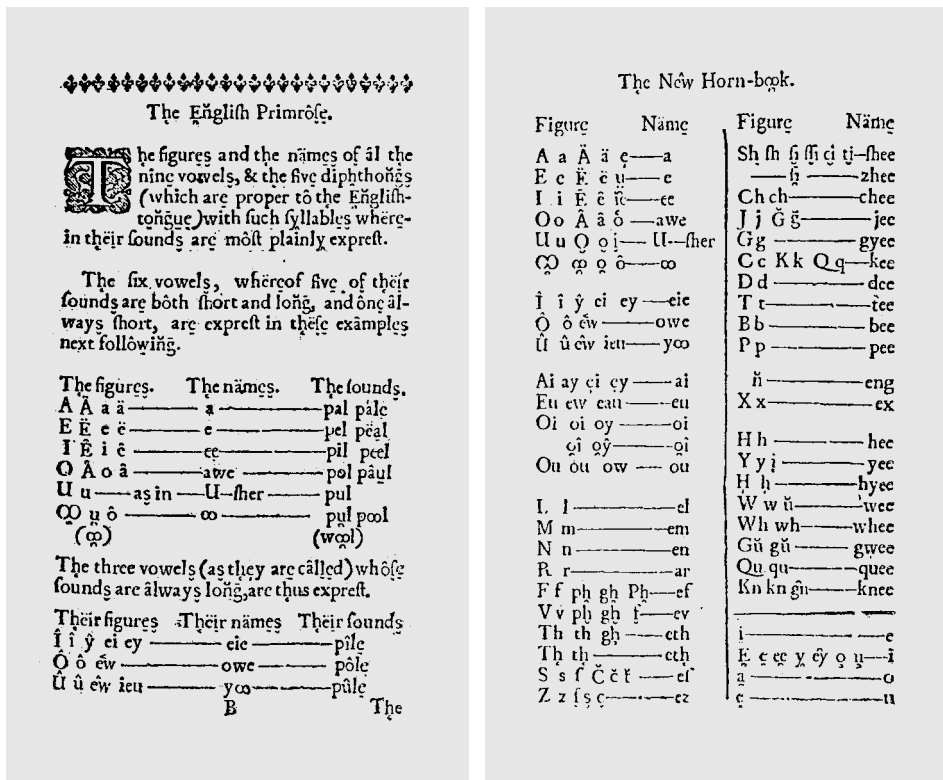 The Eňgliſh Primrôſe.
The figures and the nämes of âl the
nine vowels, & the five diphthoňgs
(which are proper tô the Eňgliſh-
toňgue) with ſuch ſyllables where-
in thëir ſounds are môſt plainly expreſt.
The ſix vowels, whëreof five of thëir
ſounds are bôth ſhort and loňg, and ône âl-
ways ſhort, are expreſt in thëſe exämples
next followiňg.
The figures. The nämes. The ſounds.
A Ä a ä — a — pal päle
E Ë e ë — e — pel pëal
I Ê i ê — ee — pil peel
O Â o â — awe — pol pâul
U u — as in — U-ſher — pul
Ꝏ u̯ ô — ꝏ — pu̯l pꝏl
(ꝏ̯) (wꝏ̯l)
The three vowels (as they are câlled) whôſe
ſounds are âlways loňg, are thus expreſt.
Thëir figures Thëir names Thëir ſounds
Î î ŷ ei ey — eie — pîle
Ô ô êw — owe — pôle
Û û êw ieu — yꝏ — pûle
B The
The Nêw Horn-bꝏ̯k.
Figure Näme
A a Ä ä e̯ — a
E e Ë ë u̯ — e
I i Ê ê îe — ee
O o Â â ô — awe
U u O̯ o̯i — U-ſher
Ꝏ ꝏ̯ o̯ ô — ꝏ
Î î ŷ ei ey — eie
Ô ô êw — owe
Û û êw ieu — yꝏ
Ai ay e̯i e̯y — ai
Eu ew eau — eu
Oi oi oy — oi
oî oŷ — oî
Ou óu ow — ou
L l — el
M m — em
N n — en
R r — ar
F f ph gh Ph — ef
V v ph gh f̯ — ev
Th th gh — eth
Th̯ th̯ — eth̯
S s ſ Č č ť — eſ
Z z ſ̯ s̯ c̯ — ez
Figure Näme
Sh ſh ſi ſſi ci ti — ſhee
ſi̯ — zhee
Ch ch — chee
J j Ğ ğ — jee
G g — gyee
C c K k Q q — kee
D d — dee
T t — tee
B b — bee
P p — pee
ň — eng
X x — ex
H h — hee
Y y i̯ — yee
H̯ h̯ — hyee
W w ŭ — wee
Wh wh — whee
Gŭ gŭ — gwee
Qu qu — quee
Kn kn gn — knee
i — e
E̯ e ee y êy o̯ u̯ — i
a̯ — o
e̯ — u